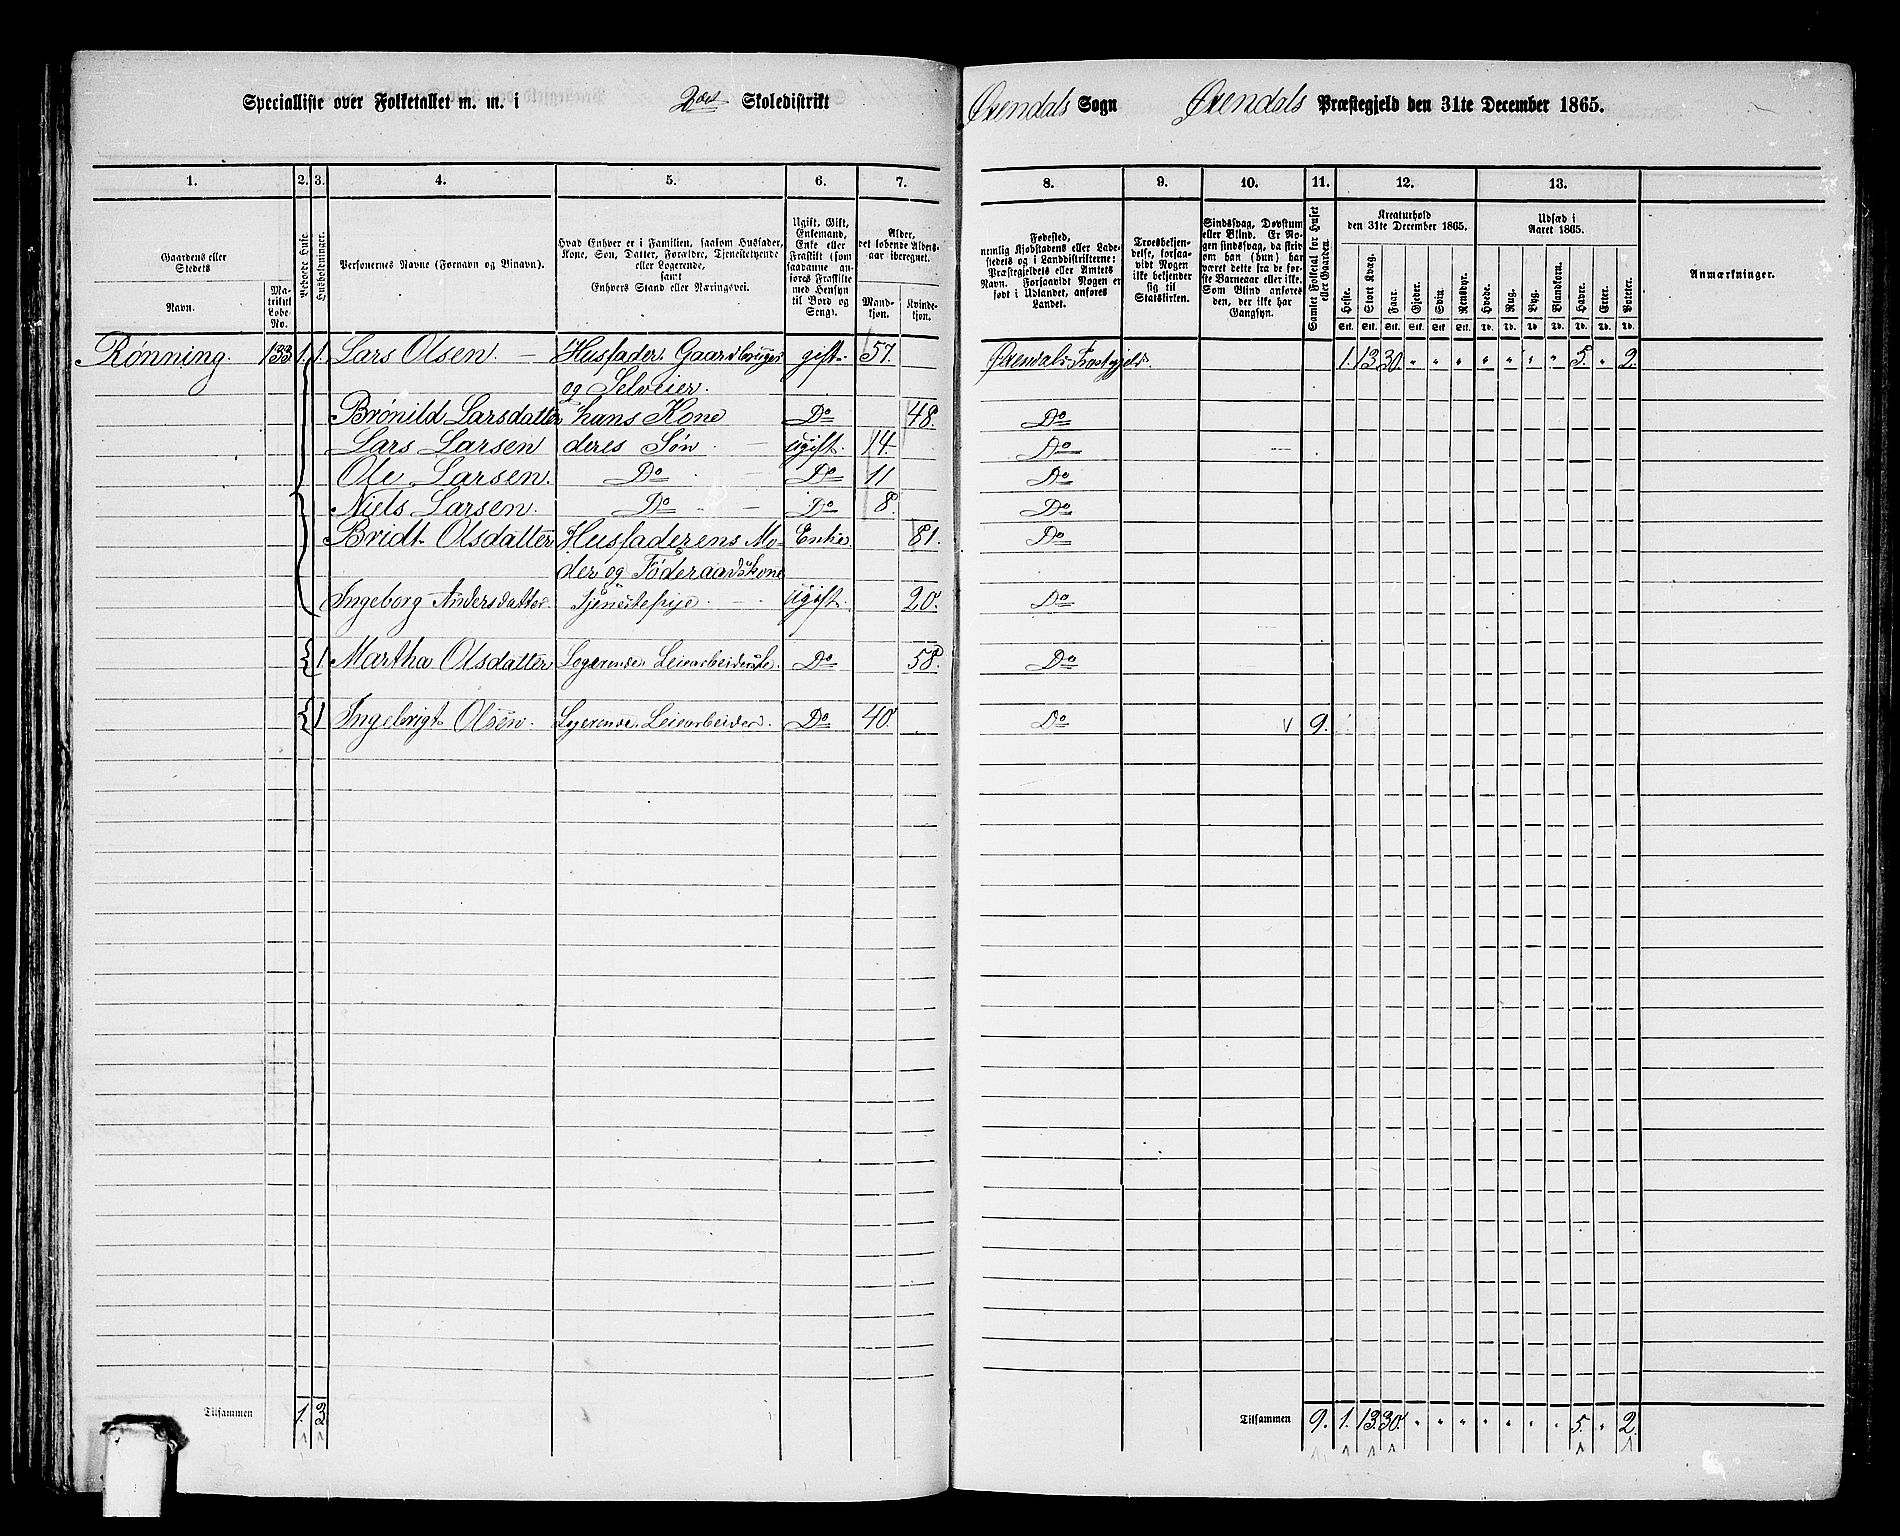 Specialliste over Folketallet m. m. i 2det Skoledistrikt
Øxendals Sogn Øxendals Præstegjeld den 31te December 1865.
1. 2. 3. 4. 5. 6. 7.
8. 9. 10. 11. 12. 13.
Gaardens eller Stedets
Navn.
Matrikul Løbe-No.
Beboede Huse.
Husholdninger.
Personernes Navne (Fornavn og Binavn).
Hvad Enhver er i Familien, saasom Husfader,
Kone, Søn, Datter, Forældre, Tjenestetyende
eller Logerende,
samt
Enhvers Stand eller Næringsvei.
Ugift, Gift,
Enkemand,
Enke eller
Fraskilt (som
saadanne anføres Fraskilte
med Hensyn
til Bord og
Seng).
Alder,
det løbende Aldersaar iberegnet.
Mandkjøn.
Kvindekjøn.
Fødested,
nemlig Kjøbstadens eller Ladestedets og i Landdistrikterne:
Præstegjeldets eller Amtets
Navn. Forsaavidt Nogen er
født i Udlandet, anføres
Landet.
Troesbekjendelse, forsaavidt Nogen
ikke bekjender
sig til
Statskirken.
Sindssvag, Døvstum
eller Blind. Er Nogen sindssvag, da skrives
om han (hun) har
været dette fra de første Barneaar eller ikke.
Som Blind anføres
den, der ikke har
Gangsyn.
Samlet Folketal for Huset
eller Gaarden.
Kreaturhold
den 31te December 1865.
Heste. Stort Kvæg. Faar. Gjeder. Svin. Rensdyr.
Stk. Stk. Stk. Stk. Stk. Stk.
Udsæd i
Aaret 1865.
Hvede. Rug. Byg. Blandkorn. Havre. Erter. Poteter.
Td. Td. Td. Td. Td. Td. Td.
Anmærkninger.
Rønning. 133 1. 1. Lars Olsen. — Husfader. Gaardbruger gift. 57. Øxendals Præstegjeld. 1. 13. 30. " " " " " " " 5. " 2.
og Selveier.
Brønild Larsdatter hans Kone Do 48. Do
Lars Larsen deres Søn. — ugift. 14. Do
Ole Larsen. Do Do 11 Do
Niels Larsen. Do Do 8. Do
Bridt Olsdatter Husfaderens Mo- Enke 81. Do
der og Føderaadskone
Ingeborg Andersdatter. Tjenestepige. ugift. 20. Do
1 Martha Olsdatter Logerende Do 58. Do
1 Ingebrigt Olsen. Logerende. Leiearbeider. Do 40. Do 9.
Tilsammen 1. 3
Tilsammen 9. 1. 13. 30. " " " " " " " 5. " 2.